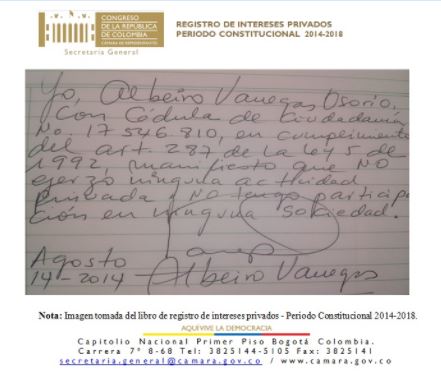 CONGRESO
DE LA REPÚBLICA
DE COLOMBIA
CÁMARA DE REPRESENTANTES
Secretaría General
REGISTRO DE INTERESES PRIVADOS
PERIODO CONSTITUCIONAL 2014-2018
Yo, Albeiro Vanegas Osorio,
Con Cédula de Ciudadanía
No. 17546.810, en cumplimiento
del art. 287 de la Ley 5 de
1992, manifiesto que NO
ejerzo ninguna actividad
privada y NO tengo partici
ción en ninguna Sociedad.
Agosto
14-2014 Albeiro Vanegas
Nota: Imagen tomada del libro de registro de intereses privados - Periodo Constitucional 2014-2018.
AQUÍVIVE LA DEMOCRACIA
Capitolio Nacional Primer Piso Bogotá Colombia.
Carrera 7° 8-68 Tel: 3825144-5105 Fax: 3825141
secretaria.general@camara.gov.co / www.camara.gov.co